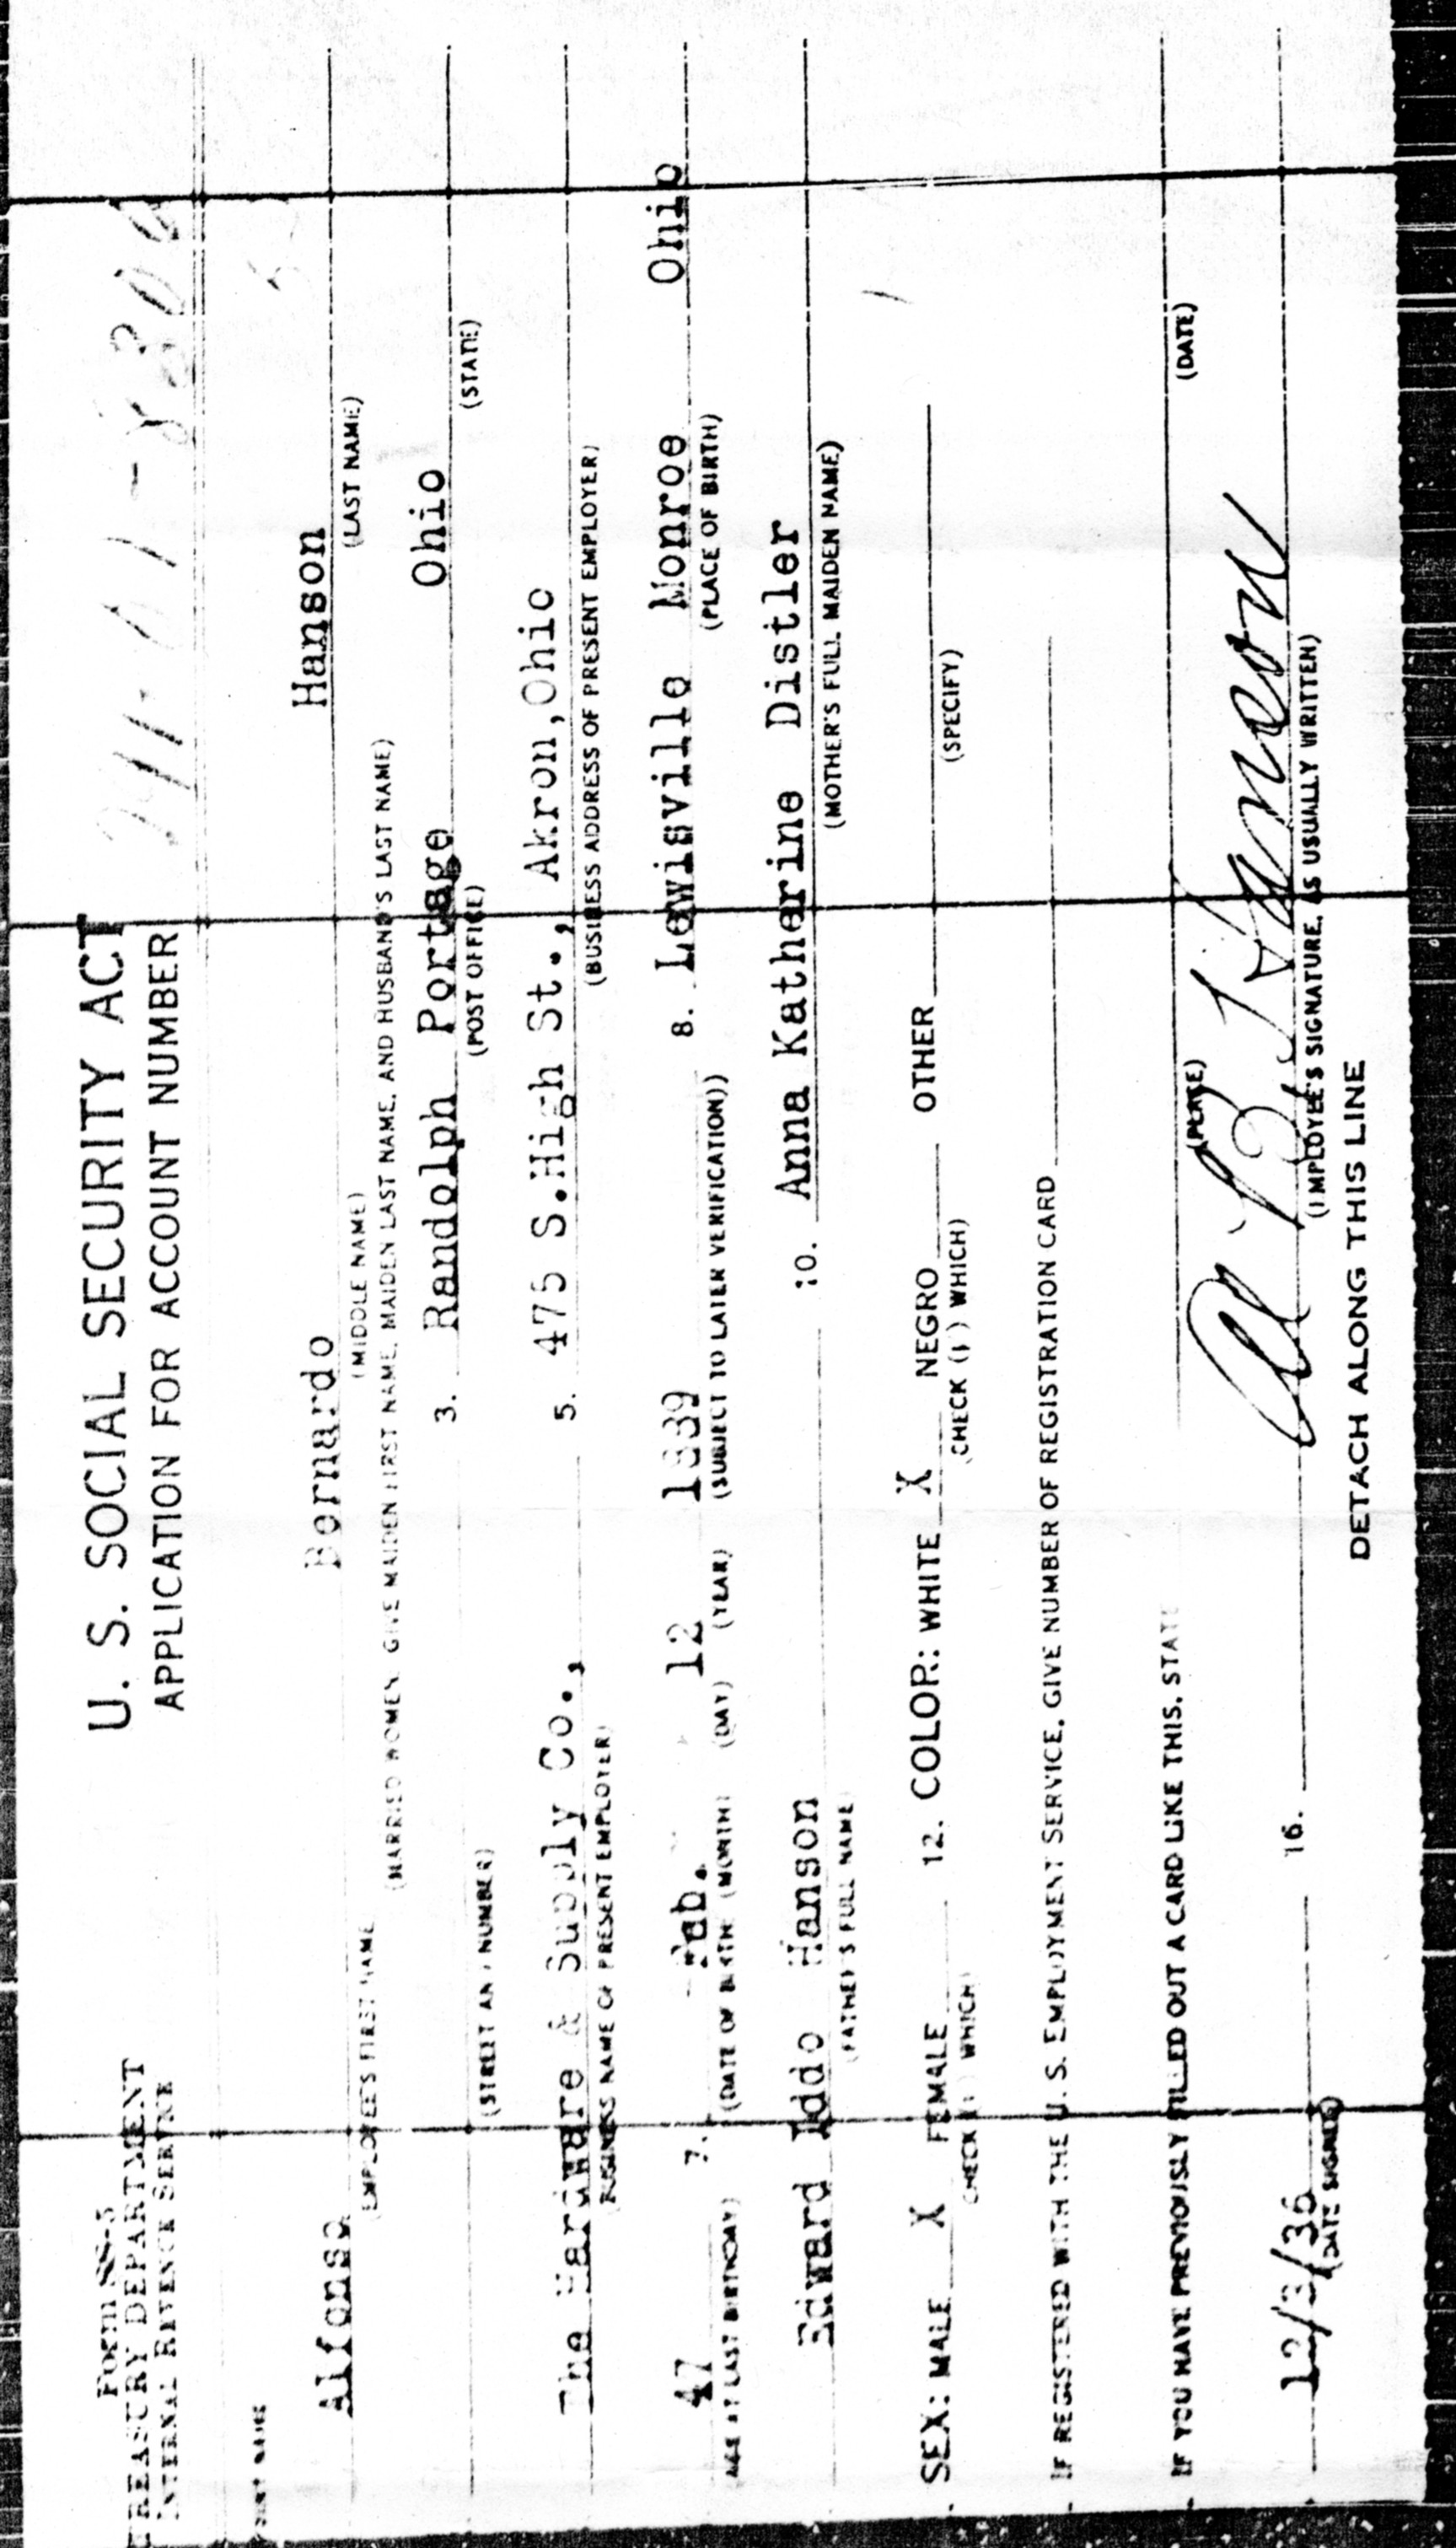 Form SS-5
TREASURY DEPARTMENT
INTERNAL REVENUE SERVICE
U. S. SOCIAL SECURITY ACT
APPLICATION FOR ACCOUNT NUMBER
PRINT NAME
Alfonso Bernardo Hanson
(EMPLOYEE'S FIRST NAME (MIDDLE NAME) (LAST NAME)
(MARRIED WOMEN GIVE MAIDEN FIRST NAME, MAIDEN LAST NAME, AND HUSBAND'S LAST NAME)
3. Randolph Portage Ohio
(STREET AND NUMBER) (POST OFFICE) (STATE)
The Hardware & Supply Co., 5. 475 S.High St., Akron,Ohio
(BUSINESS NAME OF PRESENT EMPLOYER) (BUSINESS ADDRESS OF PRESENT EMPLOYER)
47 7. Feb. 12 1889 8. Lewisville Monroe Ohio
AGE AT LAST BIRTHDAY) (DATE OF BIRTH: (MONTH) (DAY) (YEAR) (SUBJECT TO LATER VERIFICATION)) (PLACE OF BIRTH)
Edward Iddo Hanson 10. Anna Katherine Distler
(FATHER'S FULL NAME) (MOTHER'S FULL MAIDEN NAME)
SEX: MALE X FEMALE 12. COLOR: WHITE X NEGRO OTHER
(CHECK (✓) WHICH) (CHECK (✓) WHICH) (SPECIFY)
IF REGISTERED WITH THE U. S. EMPLOYMENT SERVICE, GIVE NUMBER OF REGISTRATION CARD
IF YOU HAVE PREVIOUSLY FILLED OUT A CARD LIKE THIS, STATE
(PLACE) (DATE)
12/3/36 16. A B Hanson
(DATE SIGNED) (EMPLOYEE'S SIGNATURE, AS USUALLY WRITTEN)
DETACH ALONG THIS LINE